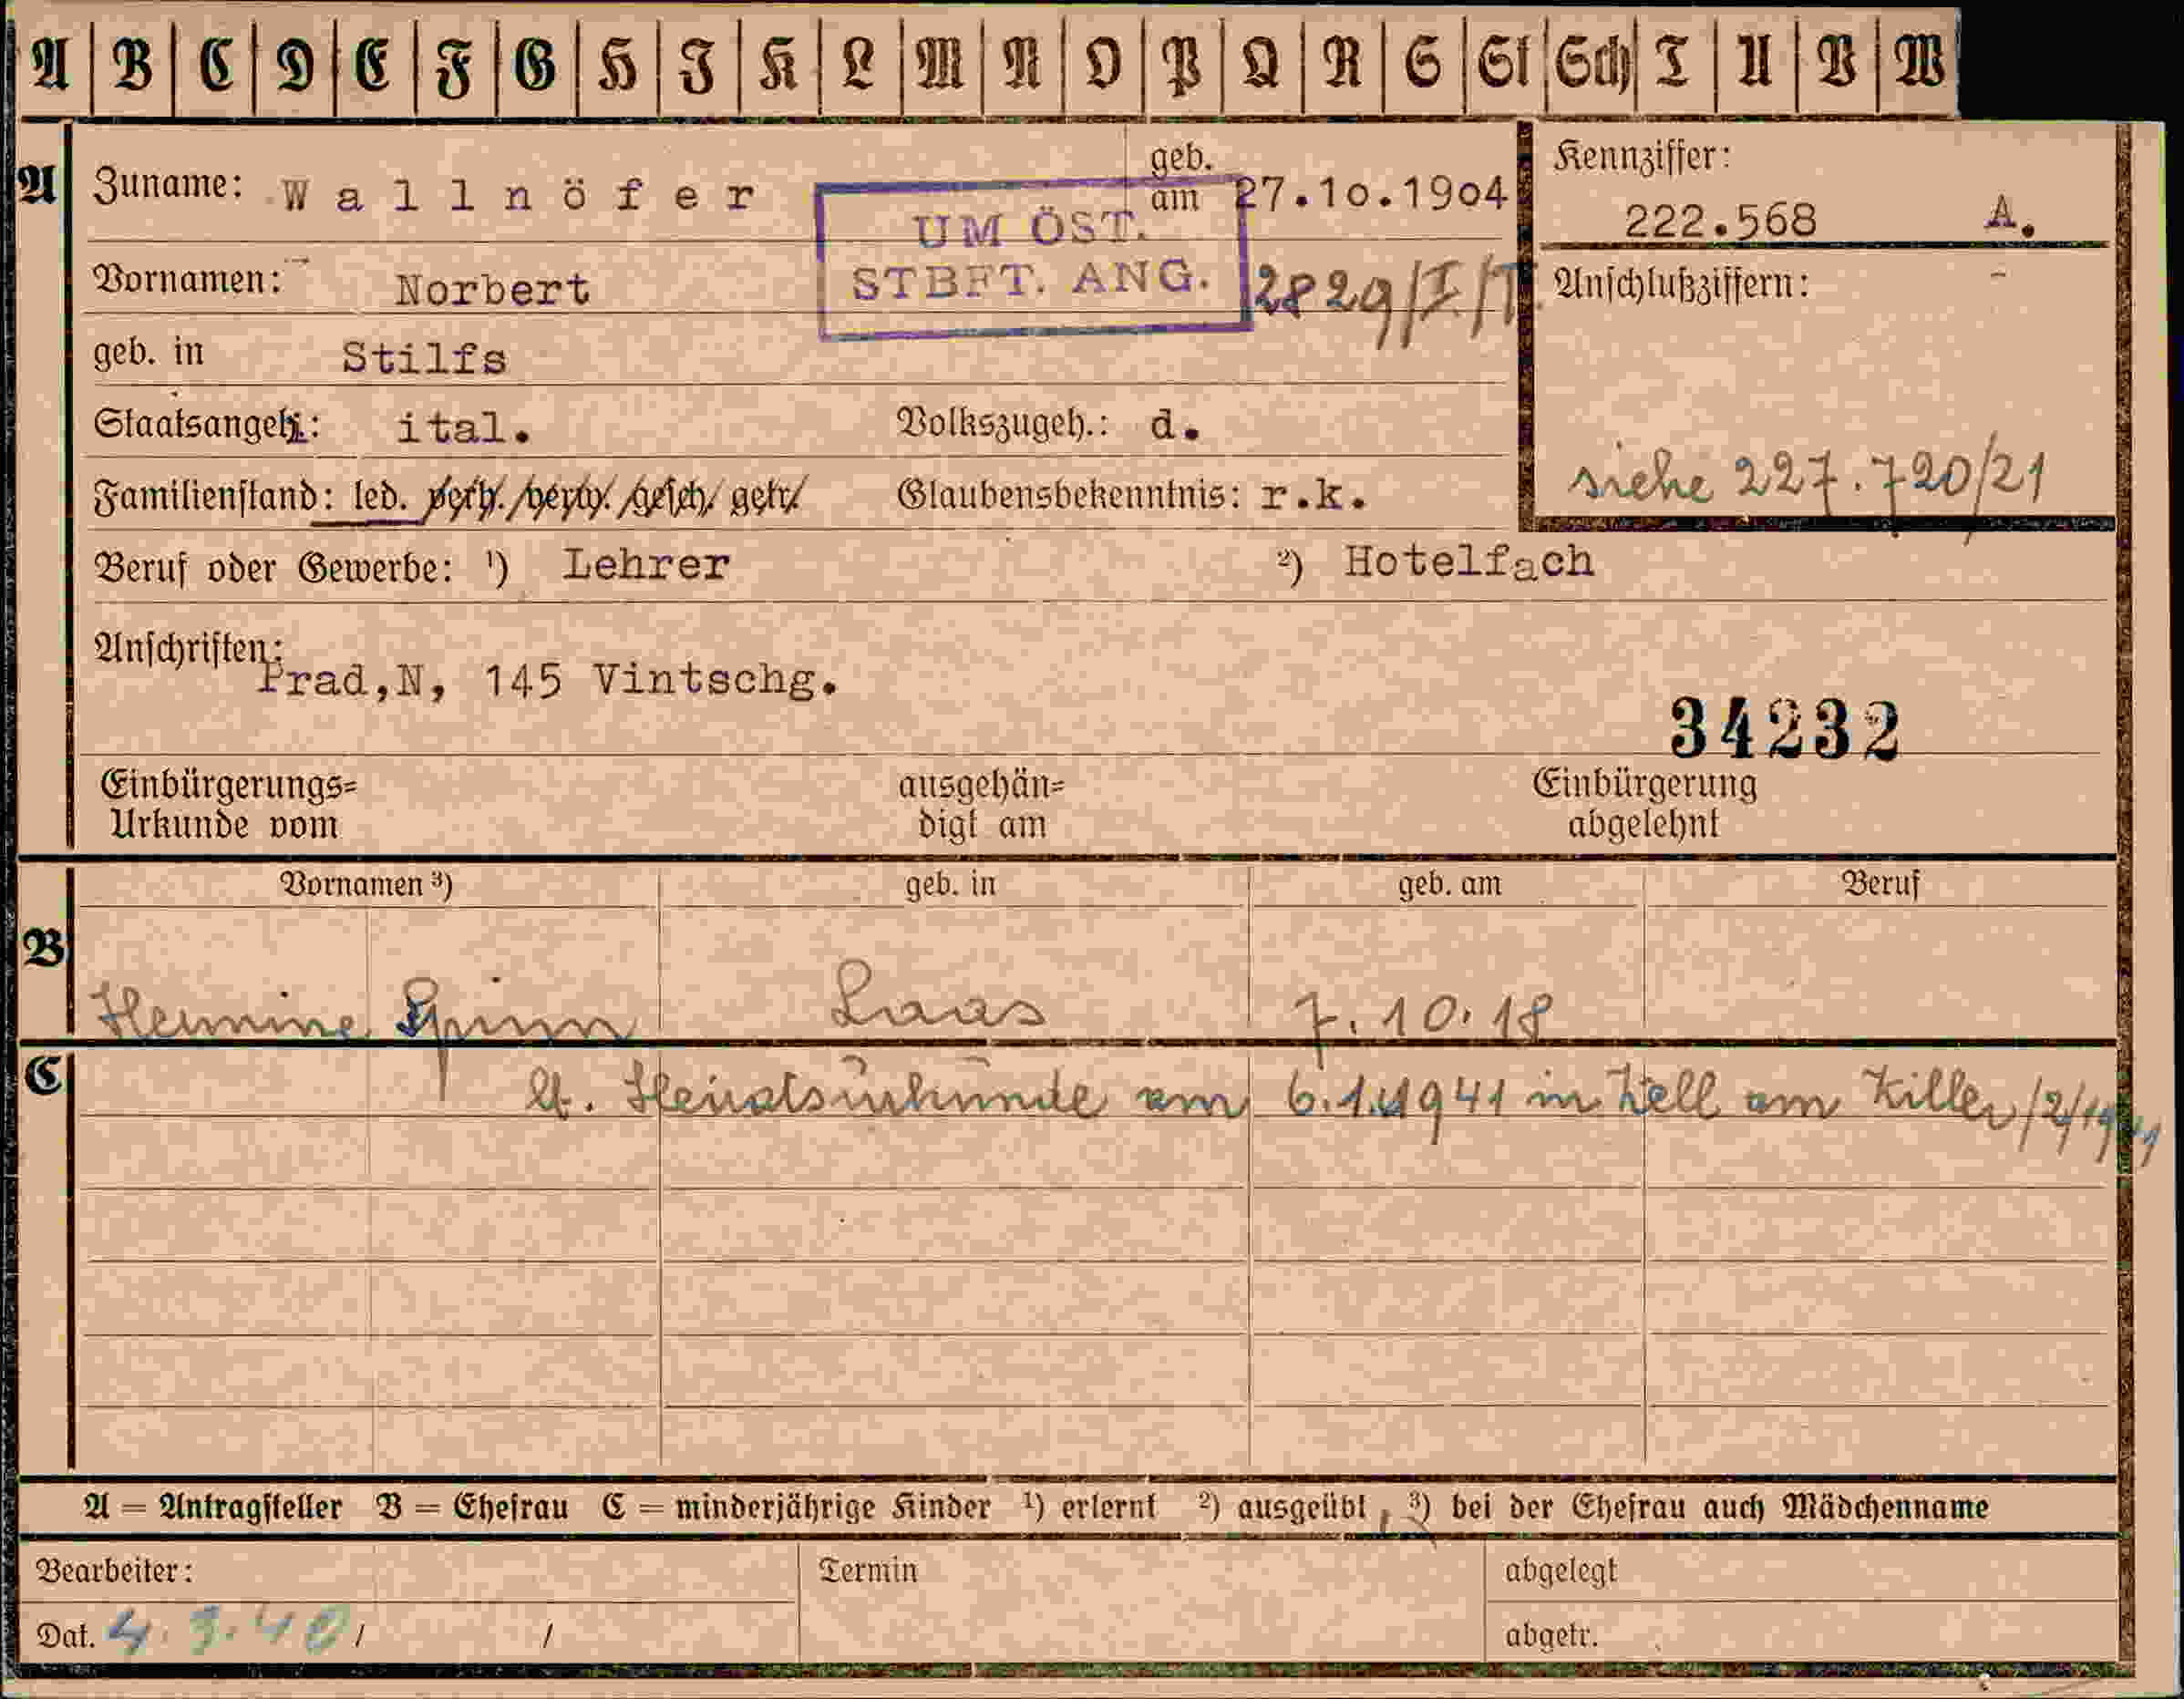 A B C D E F G H I K L M N O P Q R S St Sch T U V W
A Zuname: Wallnöfer geb. am 27.10.1904
Kennziffer: 222.568 A.
UM ÖST.
STBFT. ANG.
Vornamen: Norbert 2829/I/T
Anschlußziffern: -
geb. in Stilfs
Staatsangeh.: ital. Volkszugeh.: d.
siehe 227.720/21
Familienstand: led. verh./verw./gesch/getr/ Glaubensbekenntnis: r.k.
Beruf oder Gewerbe: ¹) Lehrer ²) Hotelfach
Anschriften:
Prad,N, 145 Vintschg.
34232
Einbürgerungs= ausgehän= Einbürgerung
Urkunde vom digt am abgelehnt
Vornamen ³) geb. in geb. am Beruf
B
Hermine Laas 7.10.18
C
lt. Heiratsurkunde am 6.1.1941 in Zell am Ziller /2/1941
A = Antragsteller B = Ehefrau C = minderjährige Kinder ¹) erlernt ²) ausgeübt, ³) bei der Ehefrau auch Mädchenname
Bearbeiter: Termin abgelegt
Dat. 4.3.40 / / abgetr.